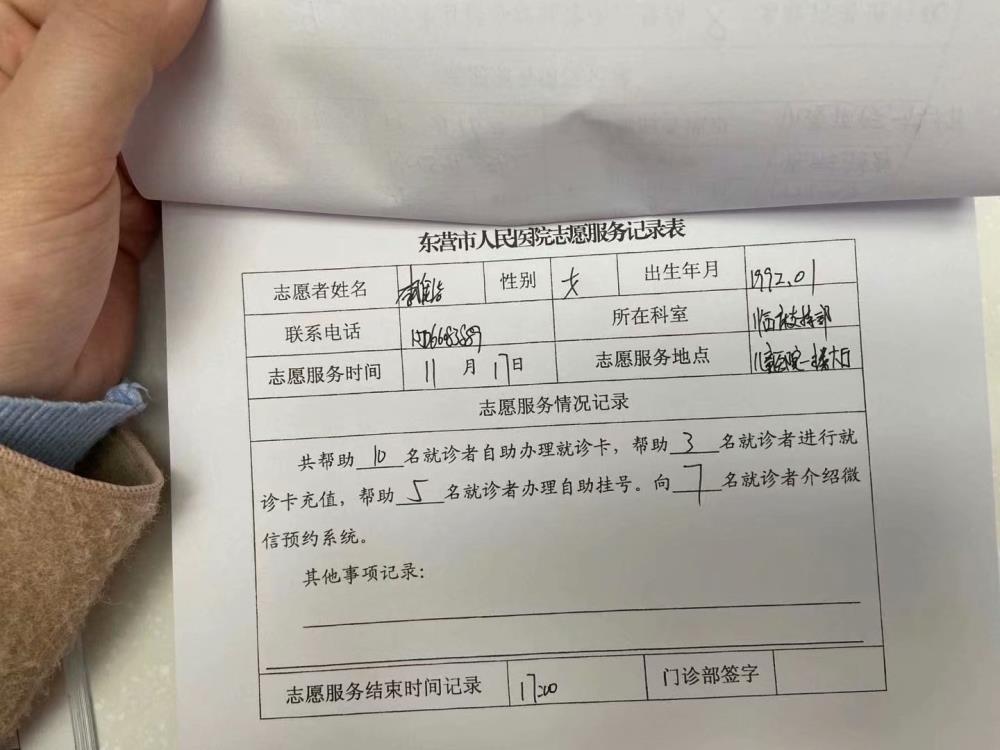 东营市人民医院志愿服务记录表
志愿者姓名 性别 女 出生年月 1992.01
联系电话 所在科室 临床支持部
志愿服务时间 11月17日 志愿服务地点 儿童医院一楼大厅
志愿服务情况记录
共帮助10名就诊者自助办理就诊卡，帮助3名就诊者进行就
诊卡充值，帮助5名就诊者办理自助挂号。向7名就诊者介绍微
信预约系统。
其他事项记录：
志愿服务结束时间记录 17:00 门诊部签字